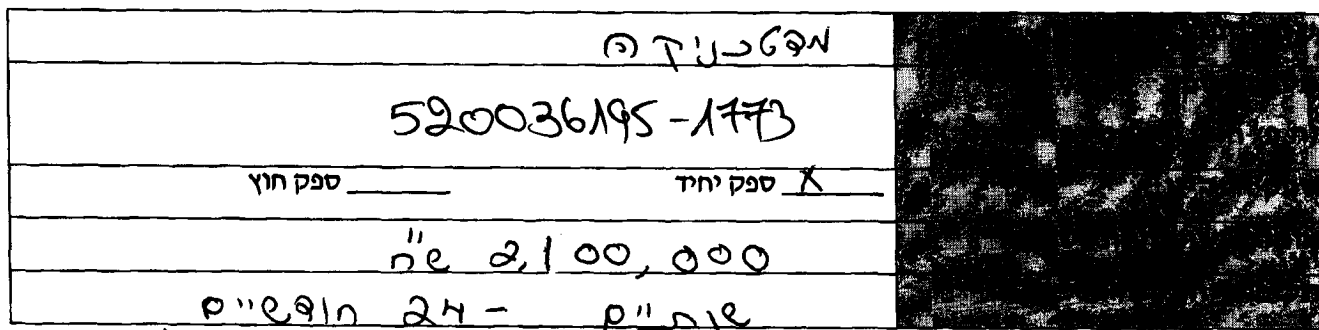 מבטכניקה
520036195-1773
X ספק יחיד ספק חוץ
2,100,000 ש"ח
שנתיים - 24 חודשיים